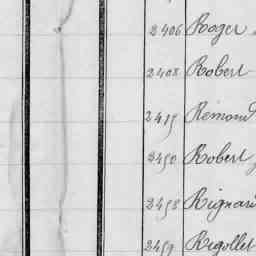 2406 Roger
2408 Robert
2415 Rémond
2450 Robert
2458 Rignard
2459 Rigollet